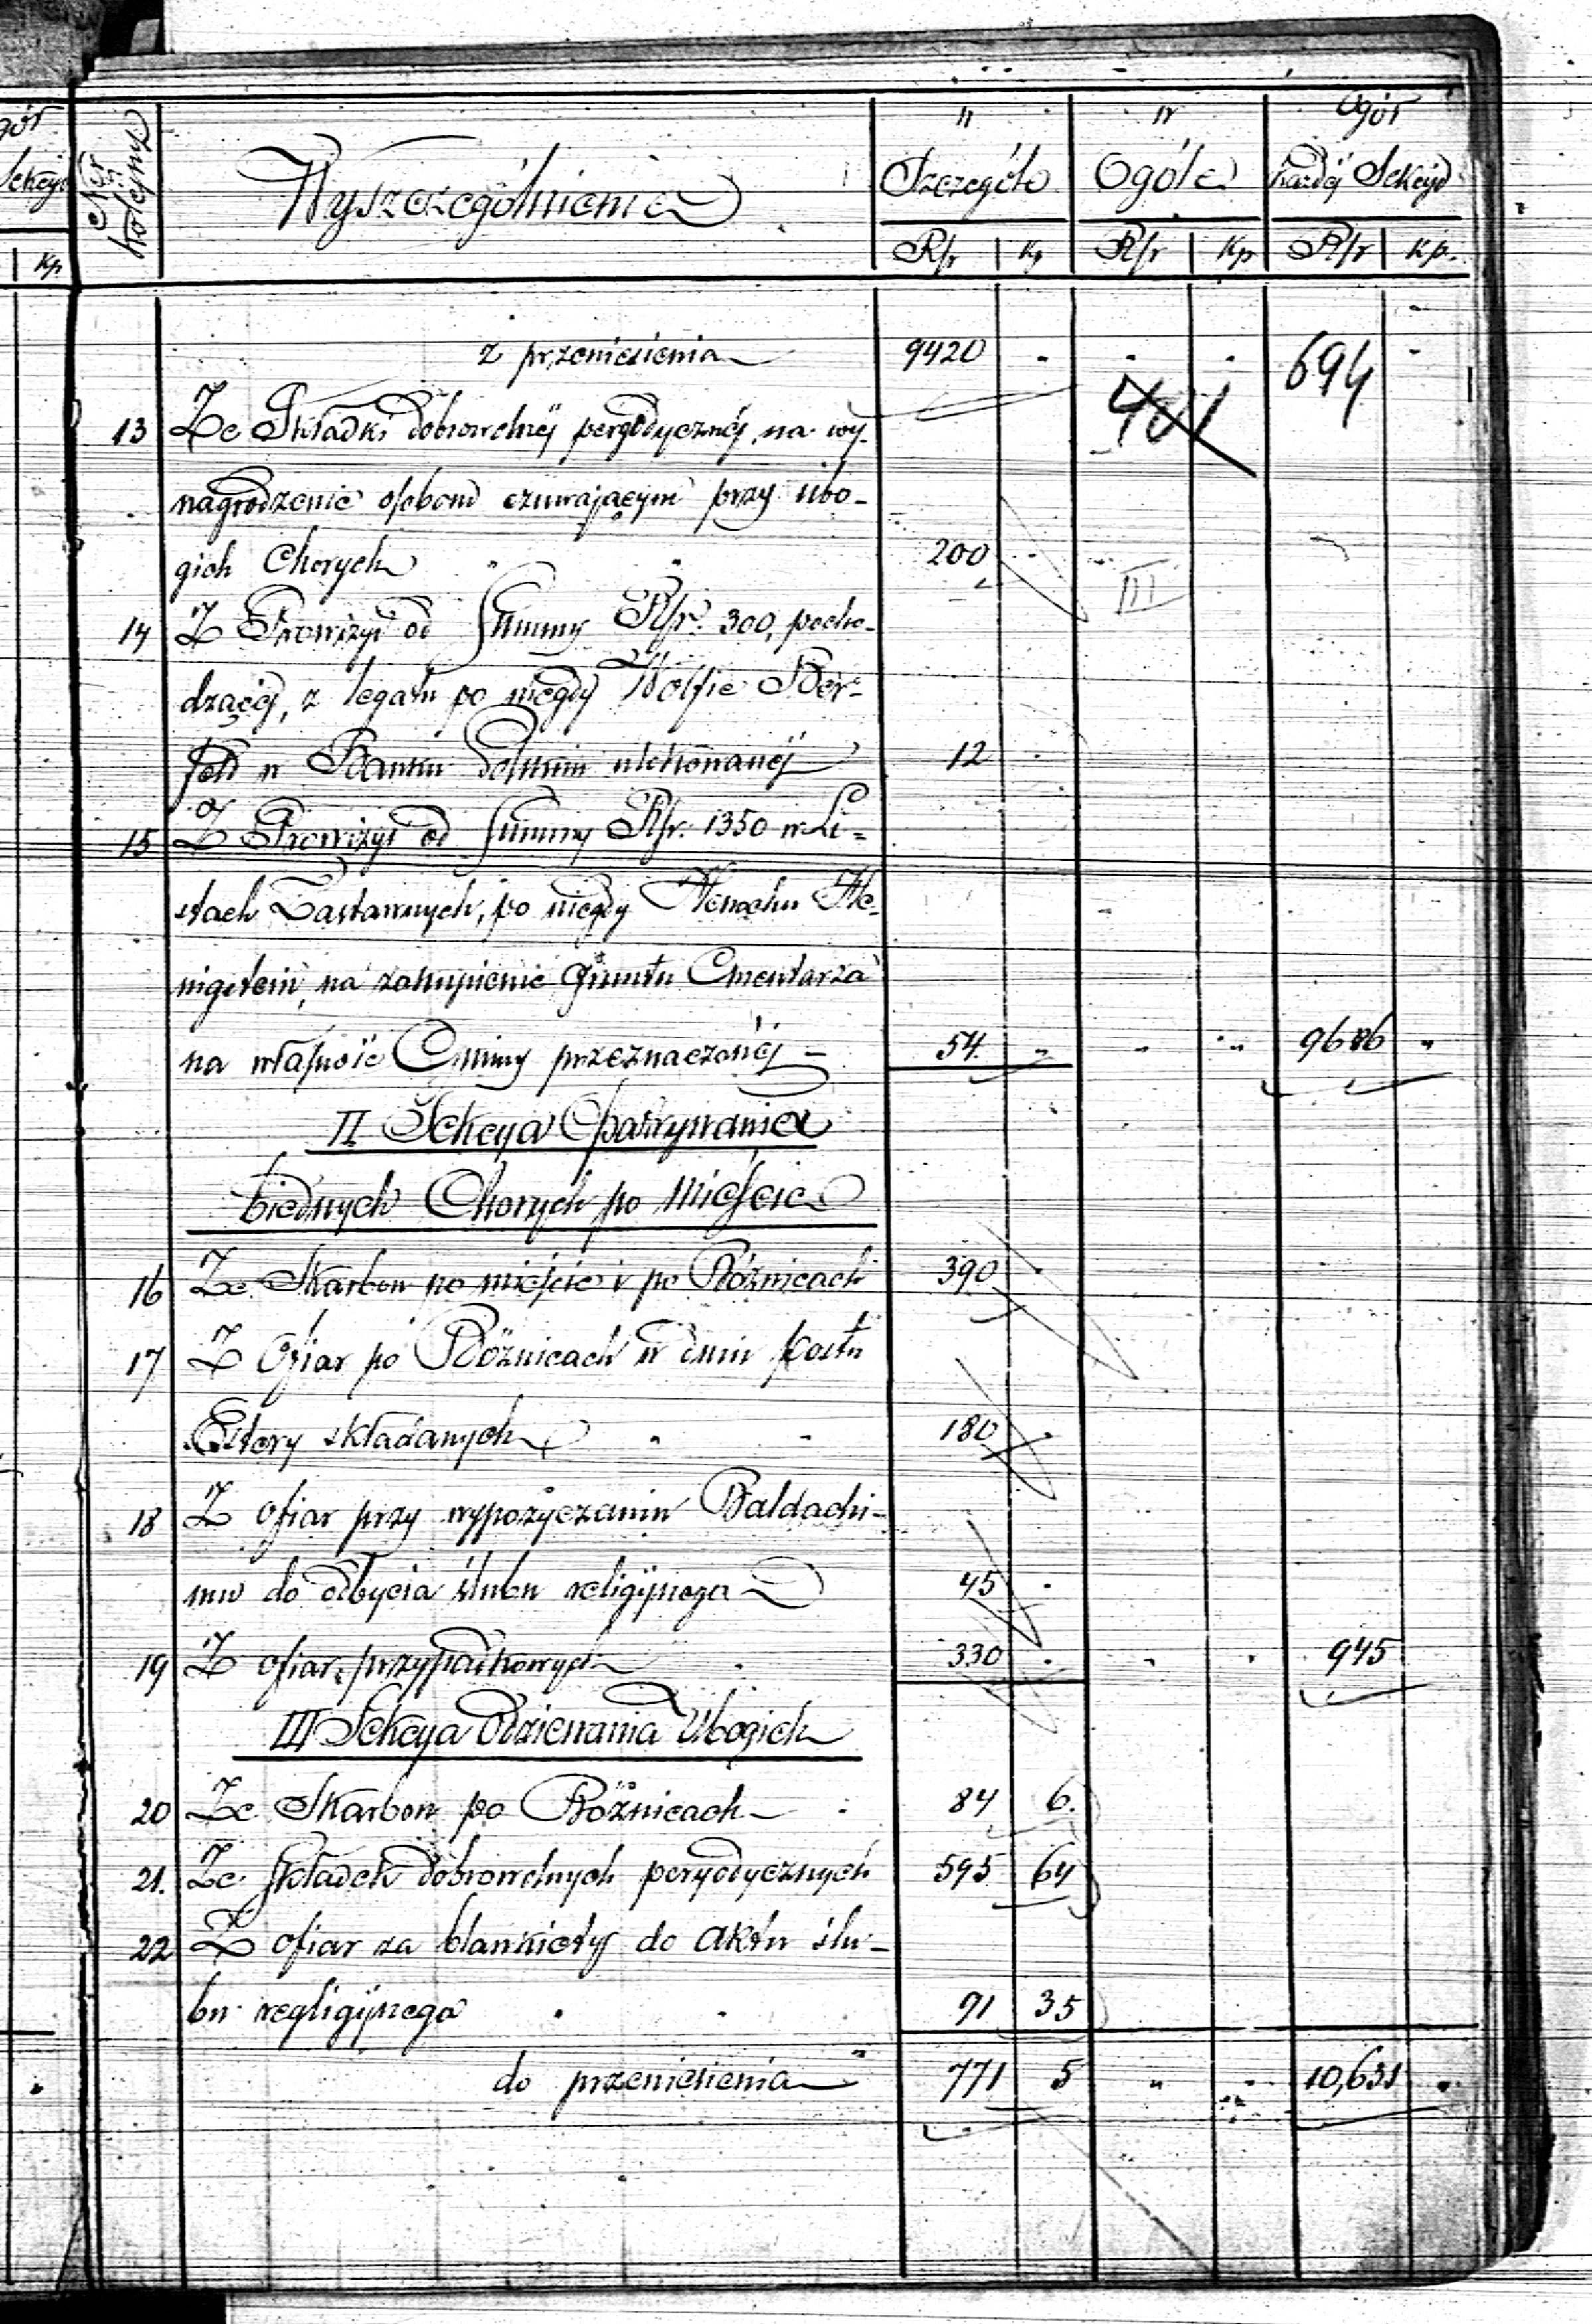 gół
Sekcyi
Kp
Nr kolejny
Wyszczególnienie
w Szczególe
w Ogóle
Ogół każdej Sekcyi
Rsr Kp Rsr Kp Rsr Kp.
z przeniesienia 9420 694
13 Ze Składki dobrowolnéj peryodycznéj, na wy- 401
nagrodzenie osobom czuwającym przy ubo-
gich Chorych 200 III
14 Z Prowizyi od Summy Rsr. 300, pocho-
dzącéj, z legatu po niegdy Wolfie Ber-
w Banku Polskim ulokowanéj 12
15 Z Prowizyi od Summy Rsr. 1350 w Li-
stach Zastawnych, po niegdy Henochu
na zakupienie Gruntu Cmentarza
na własność Gminy przeznaczonéj 54. 9686
II Sekcya Opatrywania
biednych Chorych po Mieście
16 Ze Skarbon po mieście i po Bóżnicach 390
17 Z Ofiar po Bóżnicach w dniu postu
Estery składanych 180
18 Z ofiar przy wypożyczaniu Baldachi-
mu do odbycia ślubu religijnego 45
19 Z ofiar przypadkowych 330 945
III Sekcya Odziewania Ubogich
20 Ze Skarbon po Bóżnicach 84 6.
21. Ze Składek dobrowolnych peryodycznych 595 64
22 Z ofiar za blankiety do aktu ślu-
bu regligijnego 91 35
do przeniesienia 771 5 10,631